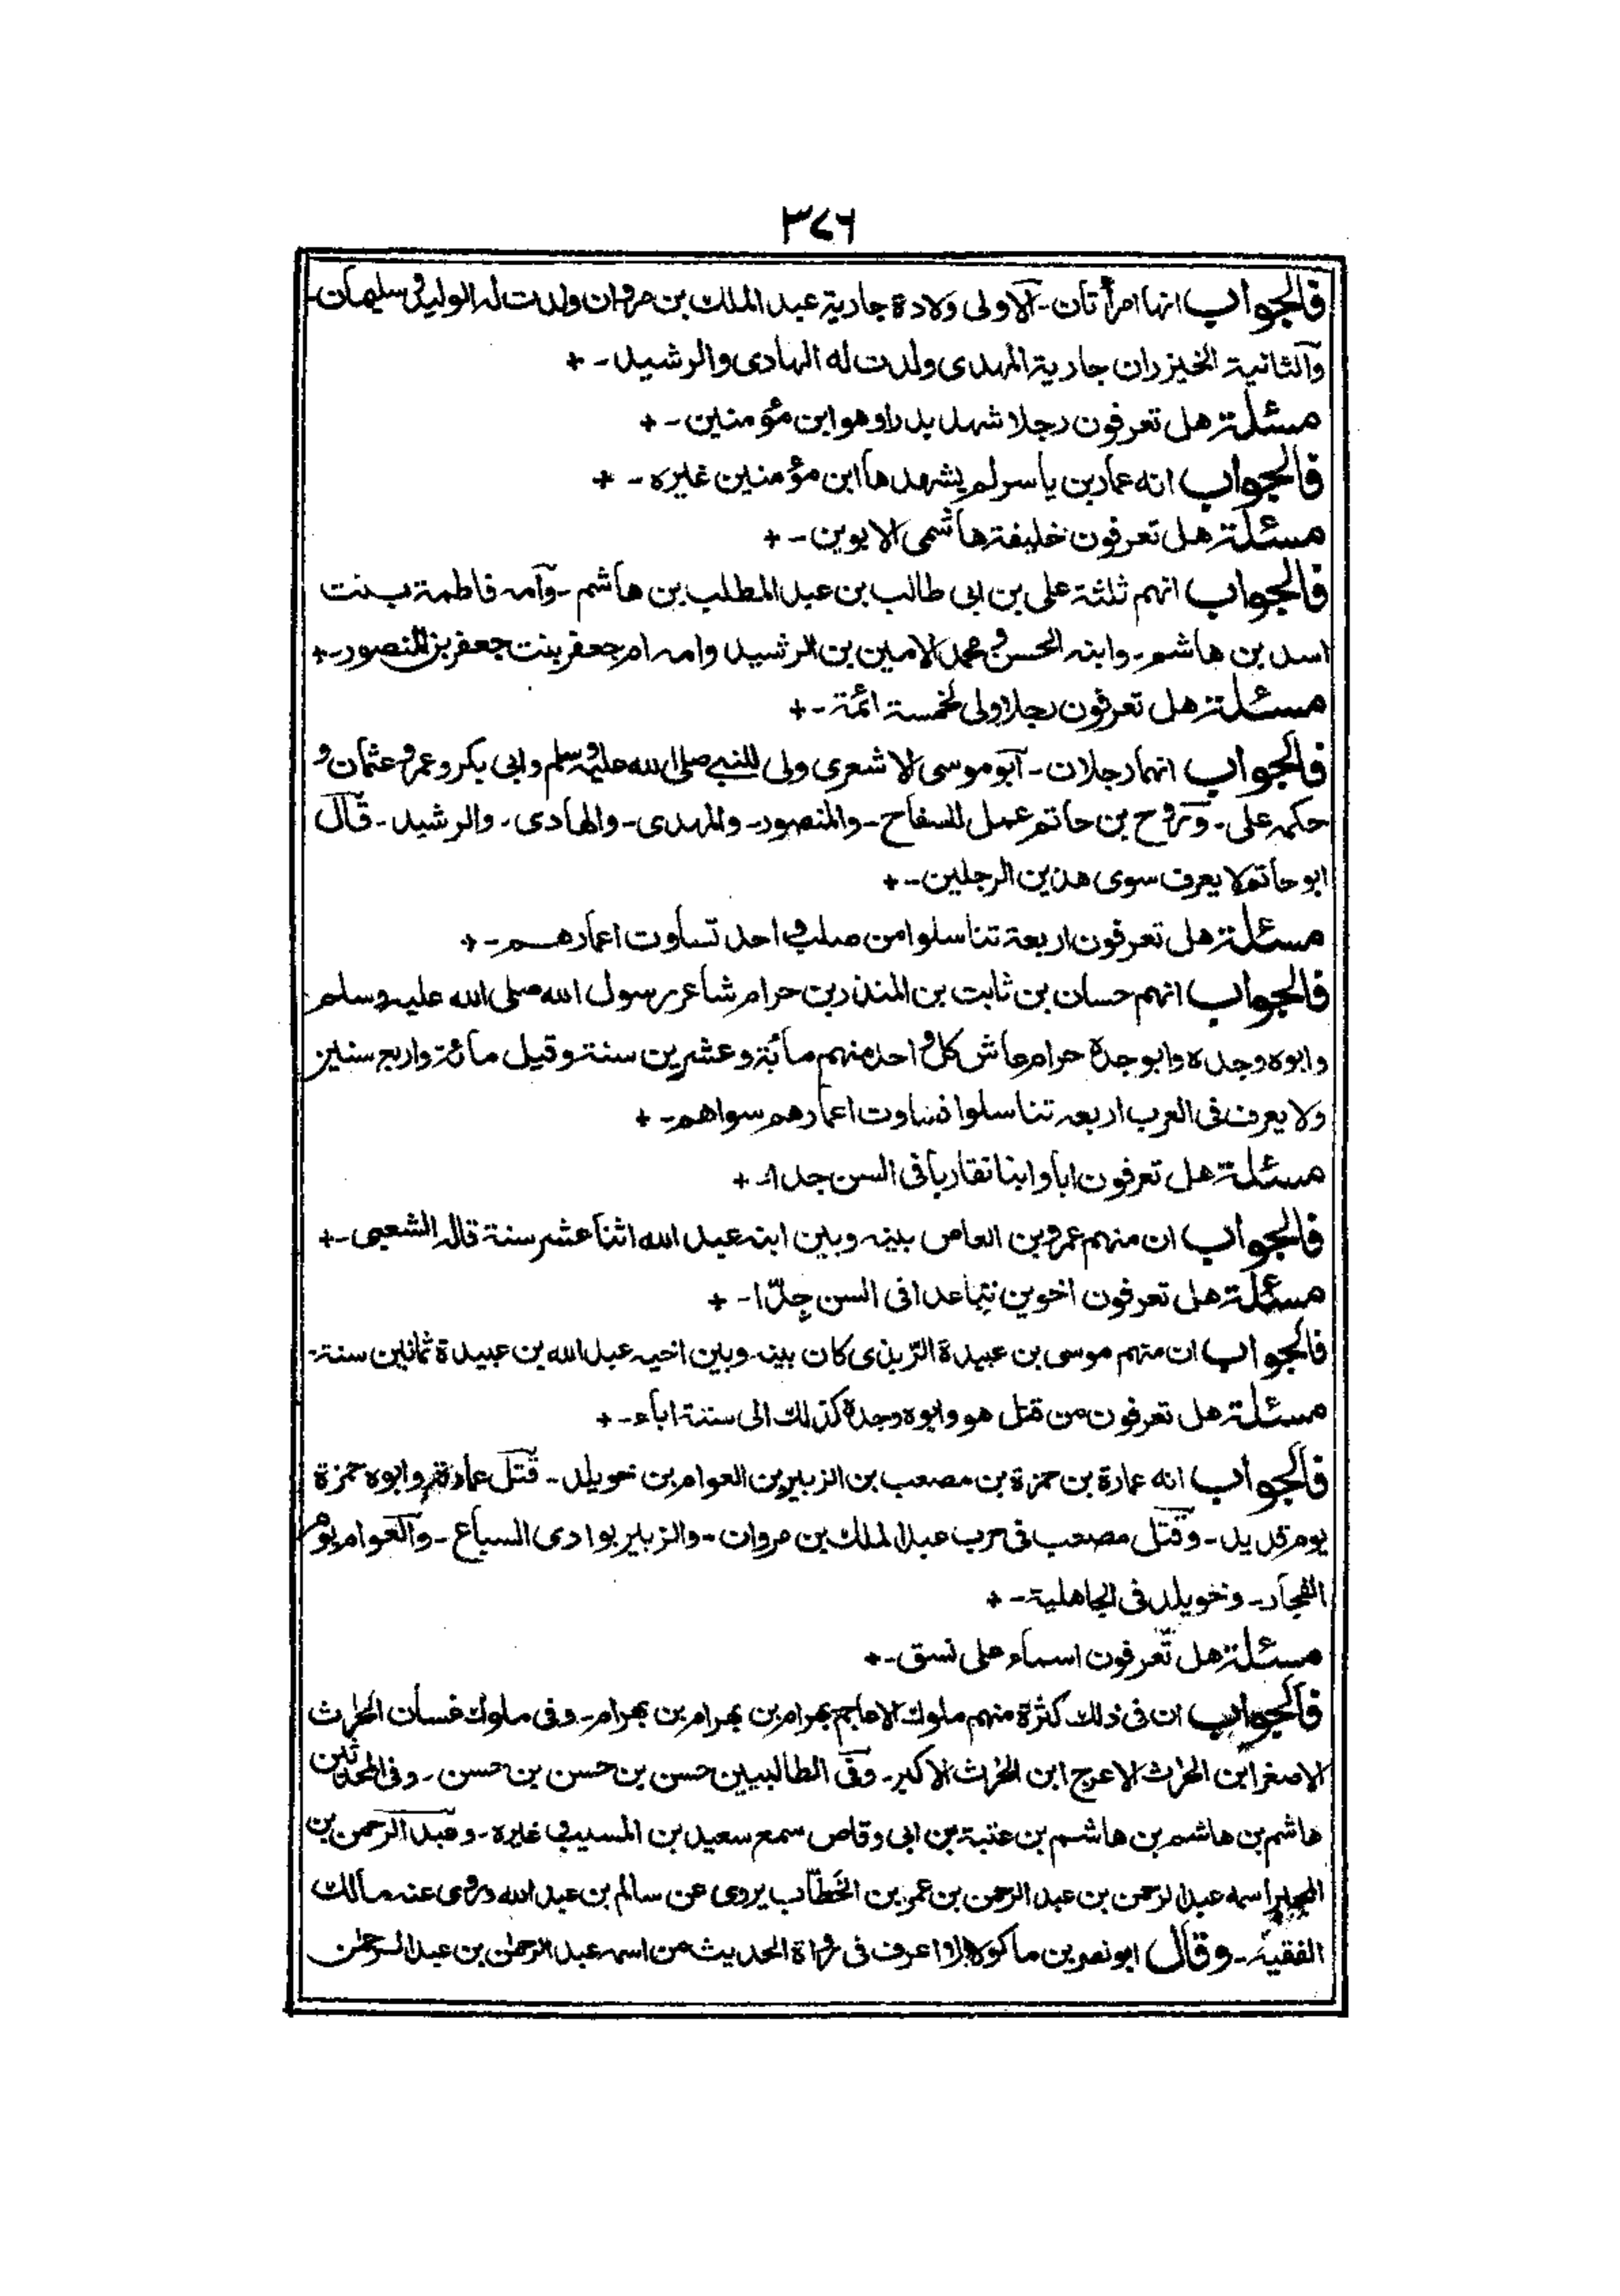 ٣٤٦
فالجواب انها امرأتان ـ الاولى ولادة جارية عبد الملك بن مروان ولدت له الوليد و سليمان ـ
والثانية الخيزران جارية المهدى ولدت له الهادى والرشيد ـ +
مسئلة هل تعرفون رجلا شهد بدرا وهو ابن مؤمنين ـ +
فالجواب انه عمار بن ياسر لم يشهدها ابن مؤمنين غيره ـ +
مسئلة هل تعرفون خليفة هاشمى الابوين ـ +
فالجواب انهم ثلثة على بن ابى طالب بن عبد المطلب بن هاشم ـ وامه فاطمة بنت
اسد بن هاشم ـ وابنه الحسن و محمد الامين بن الرشيد وامه ام جعفر بنت جعفر بن المنصور ـ +
مسئلة هل تعرفون رجلا ولى لخمسة ائمة ـ +
فالجواب انهما رجلان ـ ابو موسى الاشعرى ولى للنبى صلى الله عليه وسلم وابى بكر وعمر و عثمان و
حكمه على ـ وروح بن حاتم عمل للسفاح ـ والمنصور ـ والمهدى ـ والهادى ـ والرشيد ـ قال
ابو حاتم لا يعرف سوى هذين الرجلين ـ +
مسئلة هل تعرفون اربعة تناسلوا من صلب واحد تساوت اعمارهم ـ +
فالجواب انهم حسان بن ثابت بن المنذر بن حرام شاعر رسول الله صلى الله عليه وسلم
وابوه وجده وابو جده حرام عاش كل واحد منهم مائة وعشرين سنة وقيل مائة واربع سنين
ولا يعرف فى العرب اربعه تناسلوا فتساوت اعمارهم سواهم ـ +
مسئلة هل تعرفون ابا وابنا تقاربا فى السن جدا ـ +
فالجواب ان منهم عمرو بن العاص بينه وبين ابنه عبد الله اثنا عشر سنة قاله الشعبى ـ +
مسئلة هل تعرفون اخوين تباعدا فى السن جدّا ـ +
فالجواب ان منهم موسى بن عبيدة الرّبذى كان بينه وبين اخيه عبد الله بن عبيدة ثمانين سنة ـ
مسئلة هل تعرفون من قتل هو وابوه وجده كذلك الى ستة اباء ـ +
فالجواب انه عمارة بن حمزة بن مصعب بن الزبير بن العوام بن خويلد ـ قتل عمارة وابوه حمزة
يوم قديد ـ وقتل مصعب فى حرب عبد الملك بن مروان ـ والزبير بوادى السباع ـ والعوام يوم
الفجار ـ وخويلد فى الجاهلية ـ +
مسئلة هل تعرفون اسماء على نسق ـ +
فالجواب ان فى ذلك كثرة منهم ملوك الاعاجم بهرام بن بهرام بن بهرام ـ وفى ملوك غسان الحرث
الاصغر ابن الحرث الاعرج ابن الحرث الاكبر ـ وفى الطالبيين حسن بن حسن بن حسن ـ وفى المحدثين
هاشم بن هاشم بن هاشم بن عتبة بن ابى وقاص سمع سعيد بن المسيب و غيره ـ وعبد الرحمن بن
المجبر اسمه عبد الرحمن بن عبد الرحمن بن عمر بن الخطّاب يروى عن سالم بن عبد الله وروى عنه مالك
الفقيه ـ وقال ابو نصر بن ماكولا لا اعرف فى رواة الحديث من اسمه عبد الرحمن بن عبد الرحمن